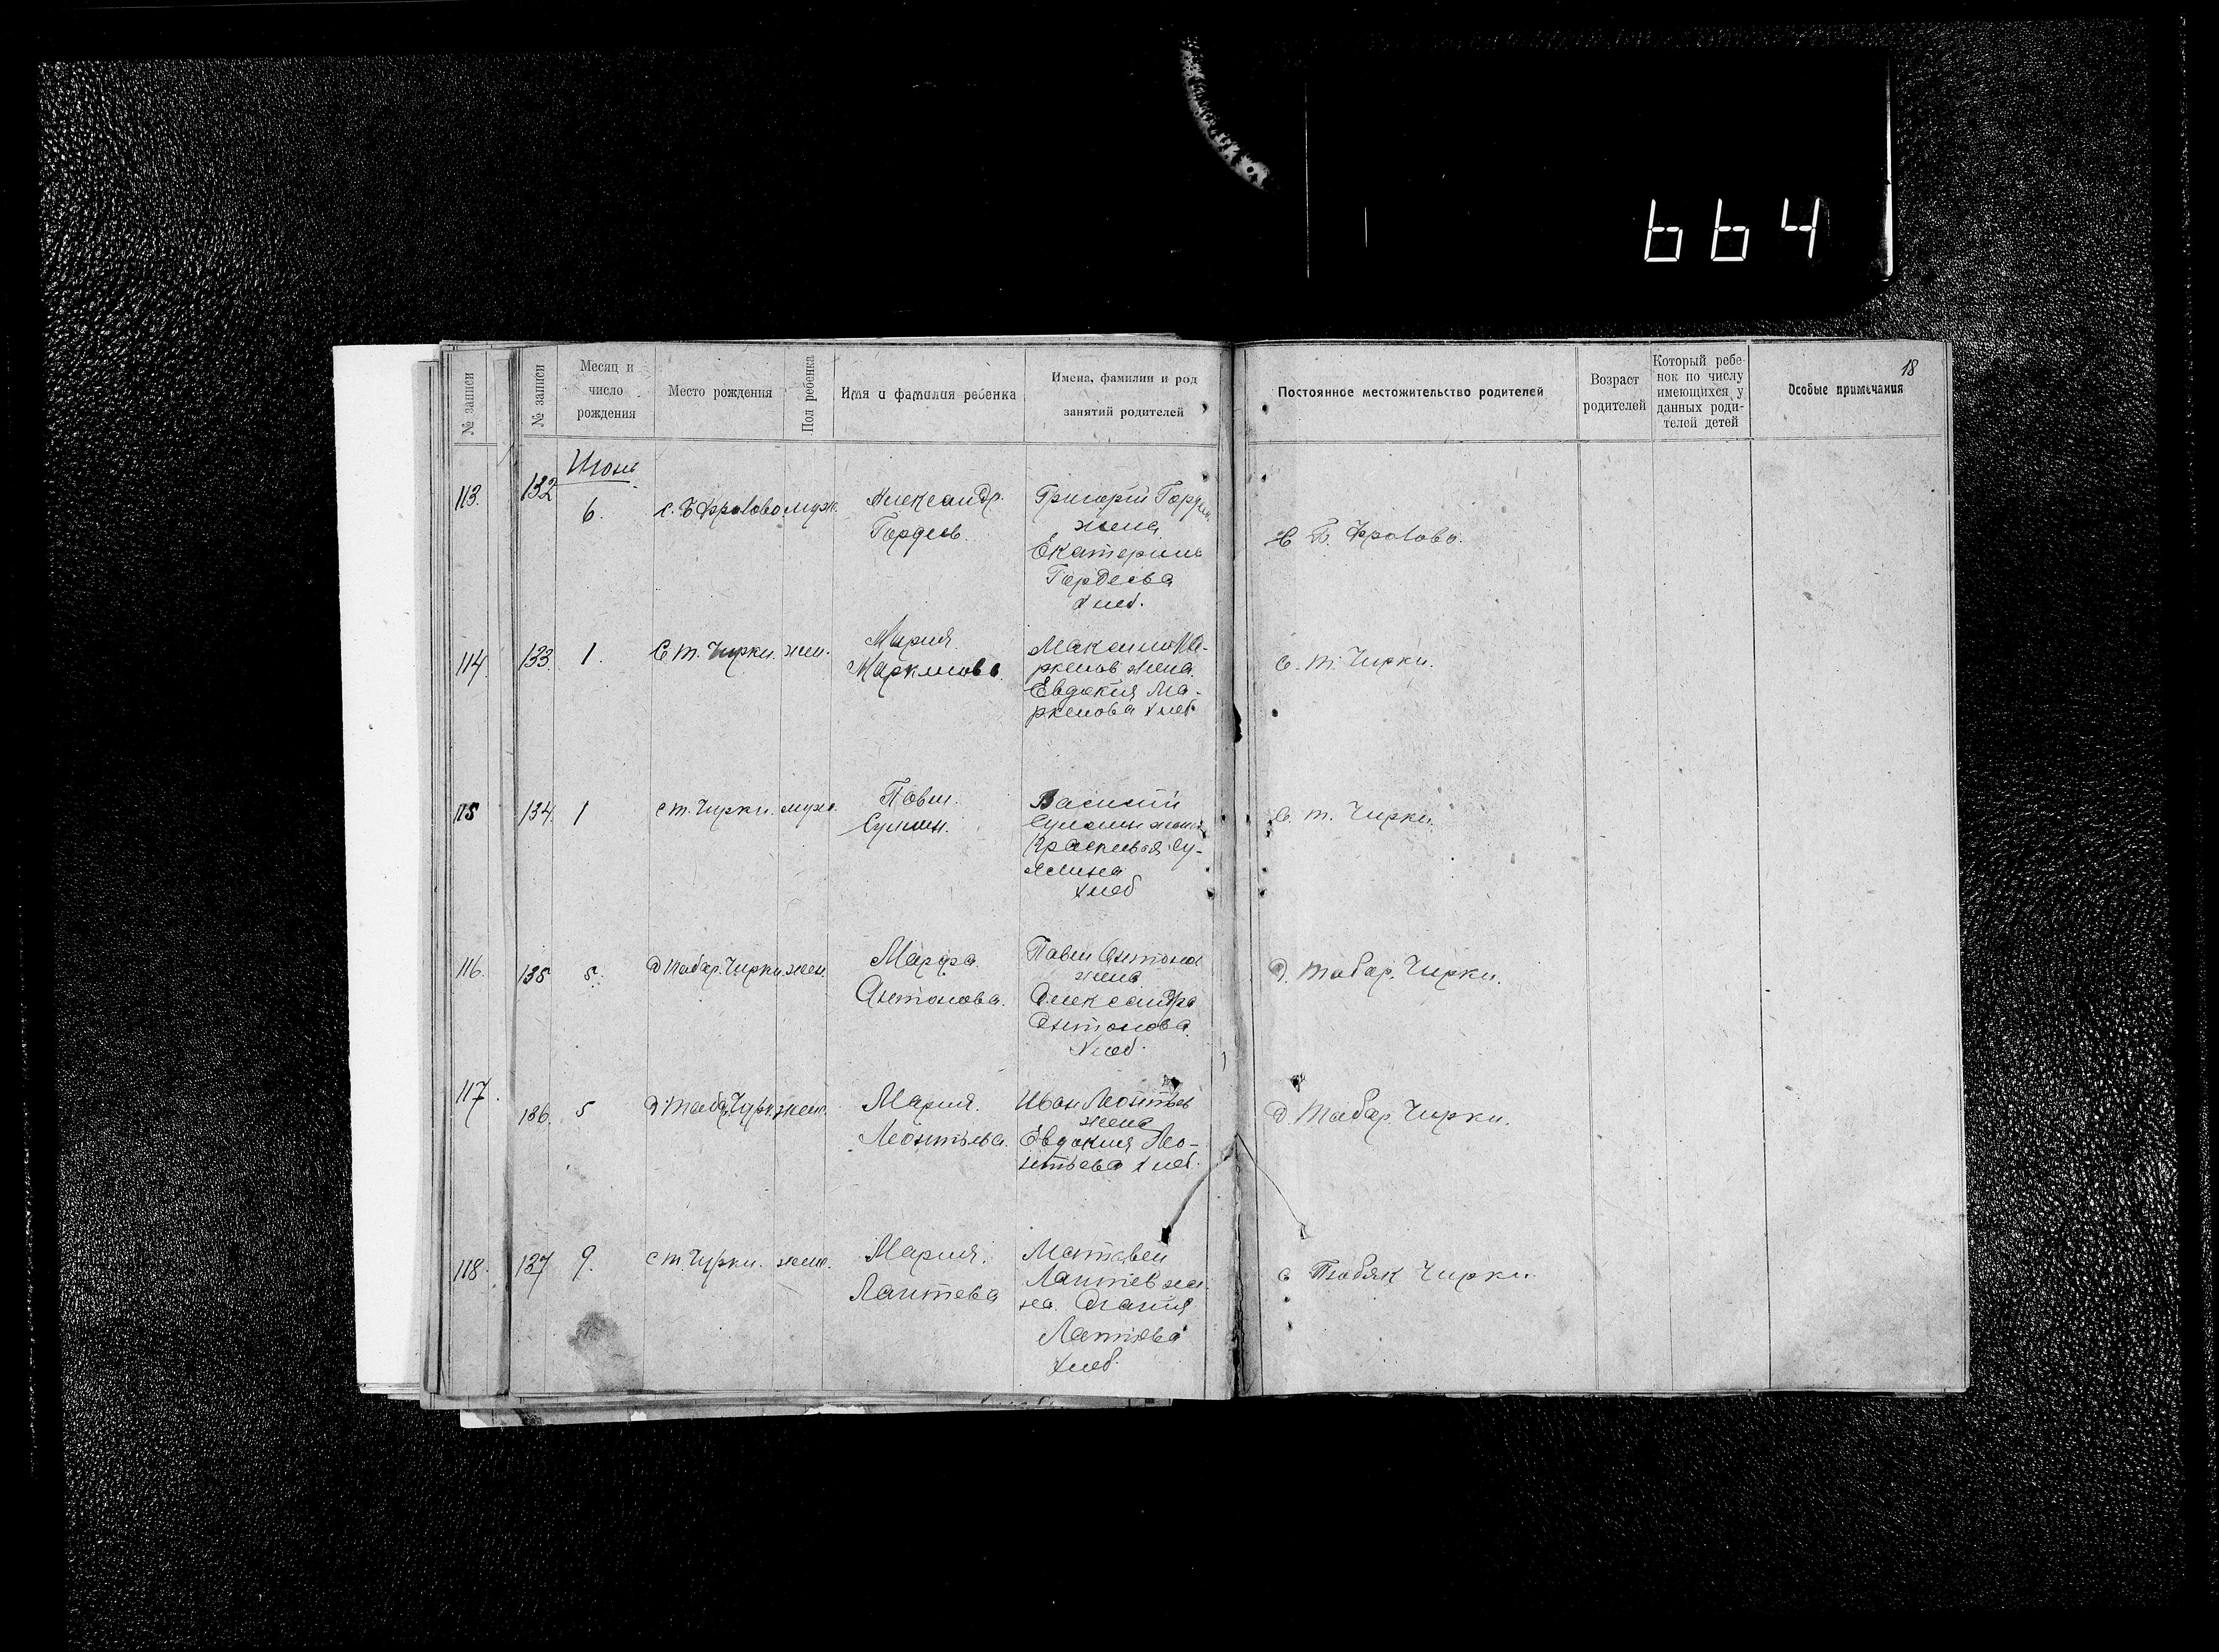 664
18
№ записи
№ записи
Месяц и число рождения
Место рождения
Пол ребенка
Имя и фамилия ребенка
Имена, фамилии и род занятий родителей
Постоянное местожительство родителей
Возраст родителей
Который ребенок по числу имеющихся у данных родителей детей
Особые примечания
Июнь
113. 132 6. с. Б Фролово муж.
Александр.
Гордеев.
Григорий
жена
Екатерина
Гордеева
хлеб.
с Б. Фролово.
114 133 1. С т. Чирки. жен.
Мария.
Маркелова.
Максим Ма-
ркелов жена.
Евдокия Ма-
ркелова хлеб.
с. т. Чирки.
115 134. 1 с т. Чирки. муж.
Павел.
Сулин.
Василий
жена
Су-
хлеб
с. т. Чирки.
116. 135 5. д табар. Чирки. жен.
Марфа.
Антонова.
Павел Антонов
жена.
Александра
Антонова.
хлеб.
д. табар. Чирки.
117. 136. 5 д. табар. Чирк. жен.
Мария.
Леонтьева.
Иван Леонтьев
жена
Евдокия Лео-
нтьева хлеб.
д. табар. Чирки.
118. 137 9. с т. Чирки. жен.
Мария.
Лаптева
Матвей
Лаптев же-
на. Агапия
Лаптева
хлеб.
с Чирки